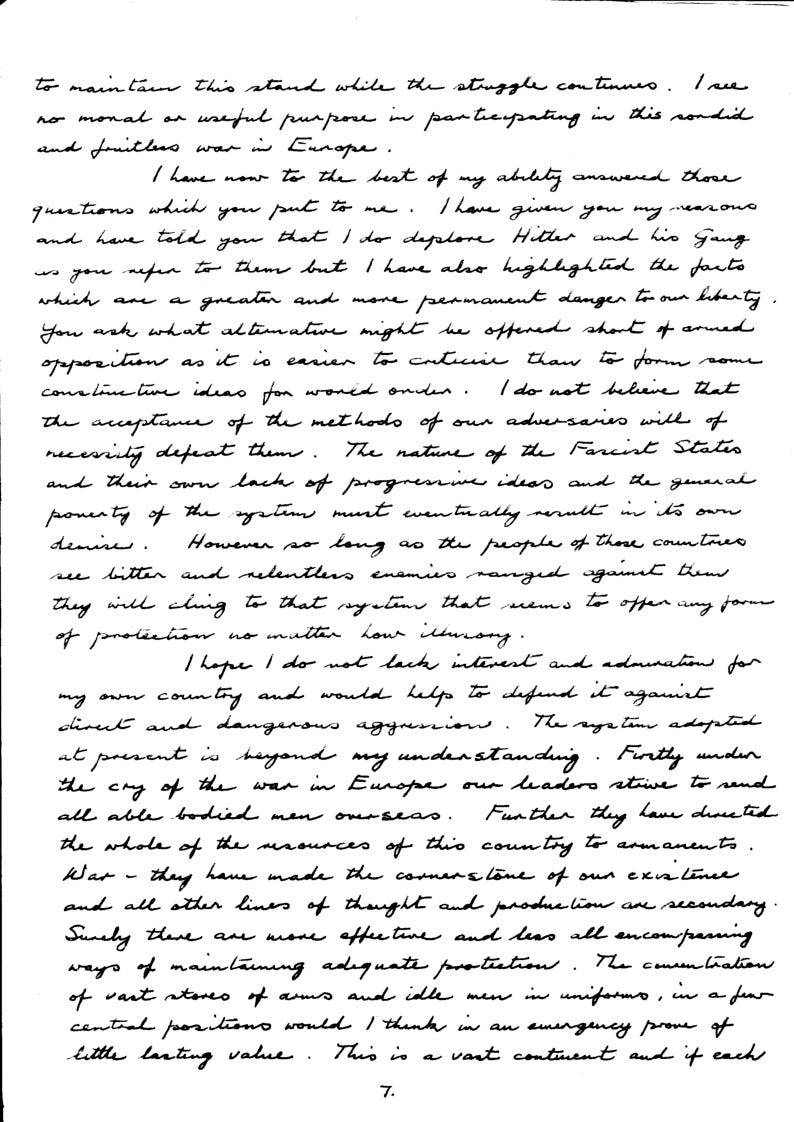 to maintain this stand while the struggle continues. I see
no moral or useful purpose in participating in this sordid
and fruitless war in Europe.
I have now to the best of my ability answered those
questions which you put to me. I have given you my reasons
and have told you that I do deplore Hitler and his Gang
as you refer to them but I have also highlighted the facts
which are a greater and more permanent danger to our liberty.
You ask what alternative might be offered short of armed
opposition as it is easier to criticise than to form some
constructive ideas for world order. I do not believe that
the acceptance of the methods of our adversaries will of
necessity defeat them. The nature of the Fascist States
and their own lack of progressive ideas and the general
poverty of the system must eventually result in its own
demise. However so long as the people of those countries
see bitter and relentless enemies ranged against them
they will cling to that system that seems to offer any form
of protection no matter how illusory.
I hope I do not lack interest and admiration for
my own country and would help to defend it against
direct and dangerous aggression. The system adopted
at present is beyond my understanding. Firstly under
the cry of the war in Europe our leaders strive to send
all able bodied men overseas. Further they have directed
the whole of the resources of this country to armaments.
War - they have made the cornerstone of our existence
and all other lines of thought and production are secondary.
Surely there are more effective and less all encompassing
ways of maintaining adequate protection. The concentration
of vast stores of arms and idle men in uniforms, in a few
central positions would I think in an emergency prove of
little lasting value. This is a vast continent and if each
7.